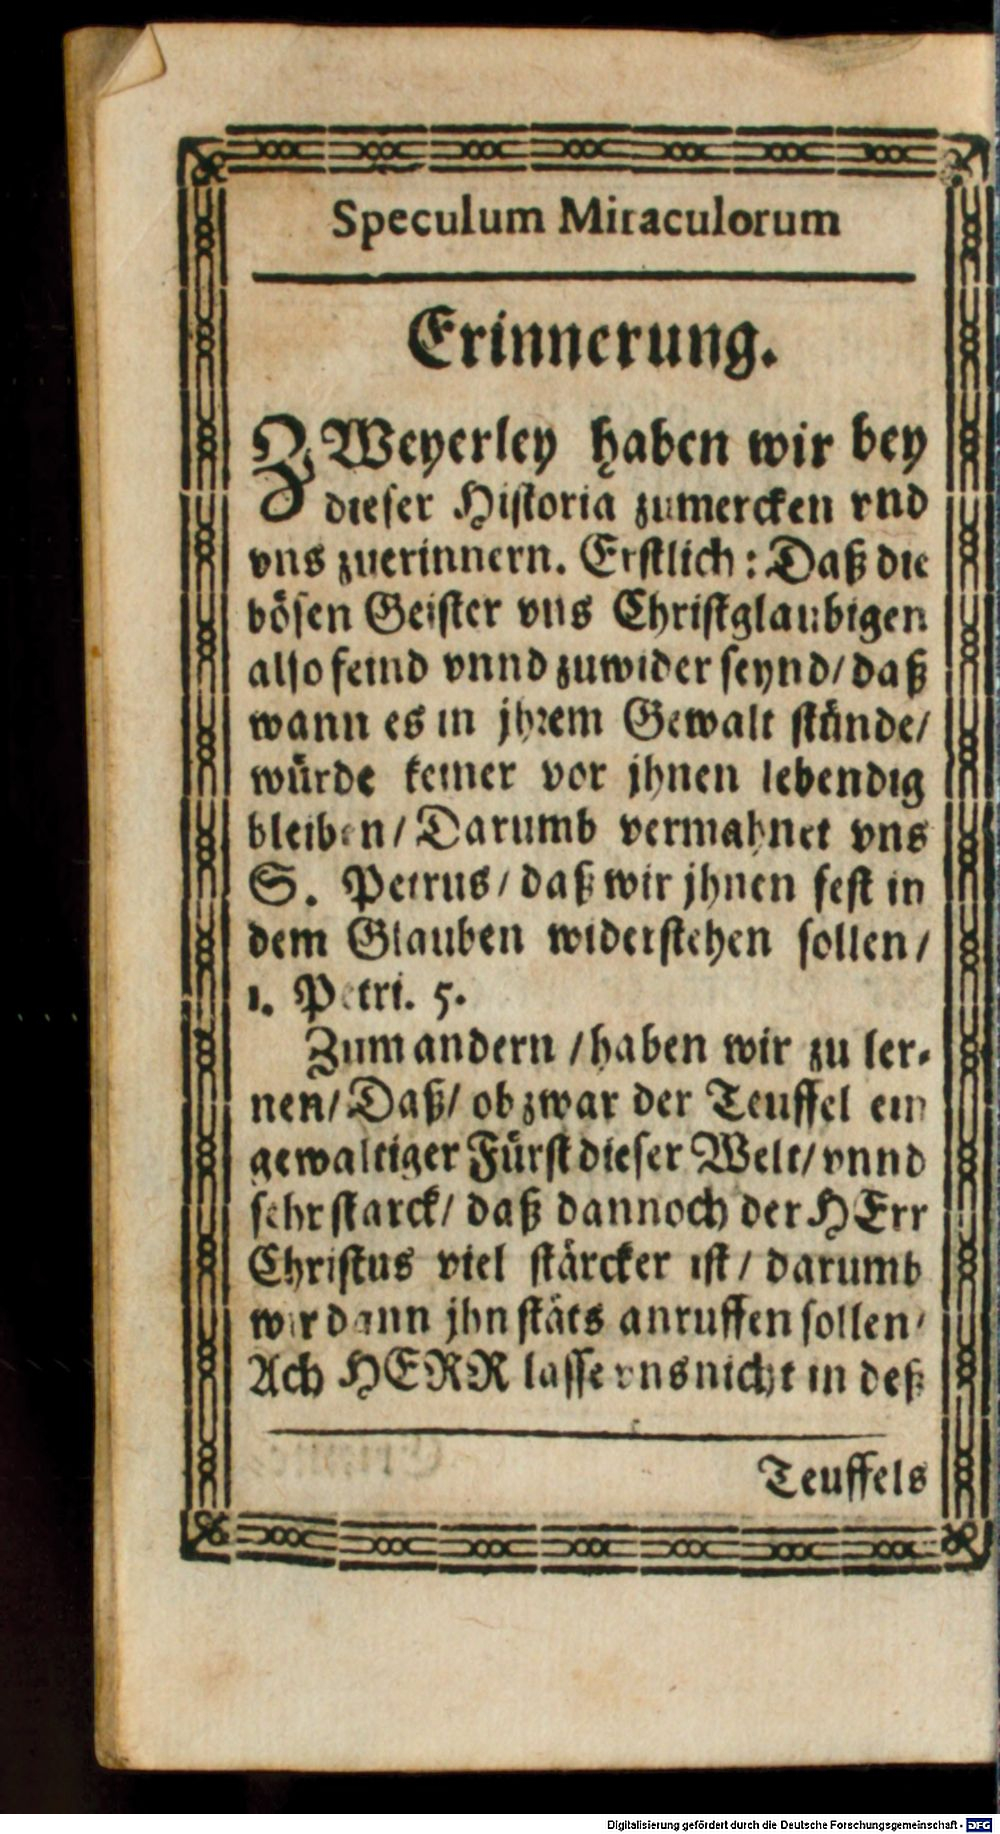 Speculum Miraculorum
Erinnerung.
ZWeyerley haben wir bey
dieser Historia zumercken vnd
vns zuerinnern. Erstlich: Daß die
bösen Geister vns Christglaubigen
also feind vnnd zuwider seynd/ daß
wann es in jhrem Gewalt stünde/
würde keiner vor jhnen lebendig
bleiben/ Darumb vermahnet vns
S. Petrus/ daß wir jhnen fest in
dem Glauben widerstehen sollen/
1. Petri. 5.
Zum andern /haben wir zu ler-
nen/ Daß/ ob zwar der Teuffel ein
gewaltiger Fürst dieser Welt/ vnnd
sehr starck/ daß dannoch der HErr
Christus viel stärcker ist/ darumb
wir dann jhn stäts anruffen sollen/
Ach HERR lasse vns nicht in deß
Teuffels
Digitalisierung gefördert durch die Deutsche Forschungsgemeinschaft - DFG